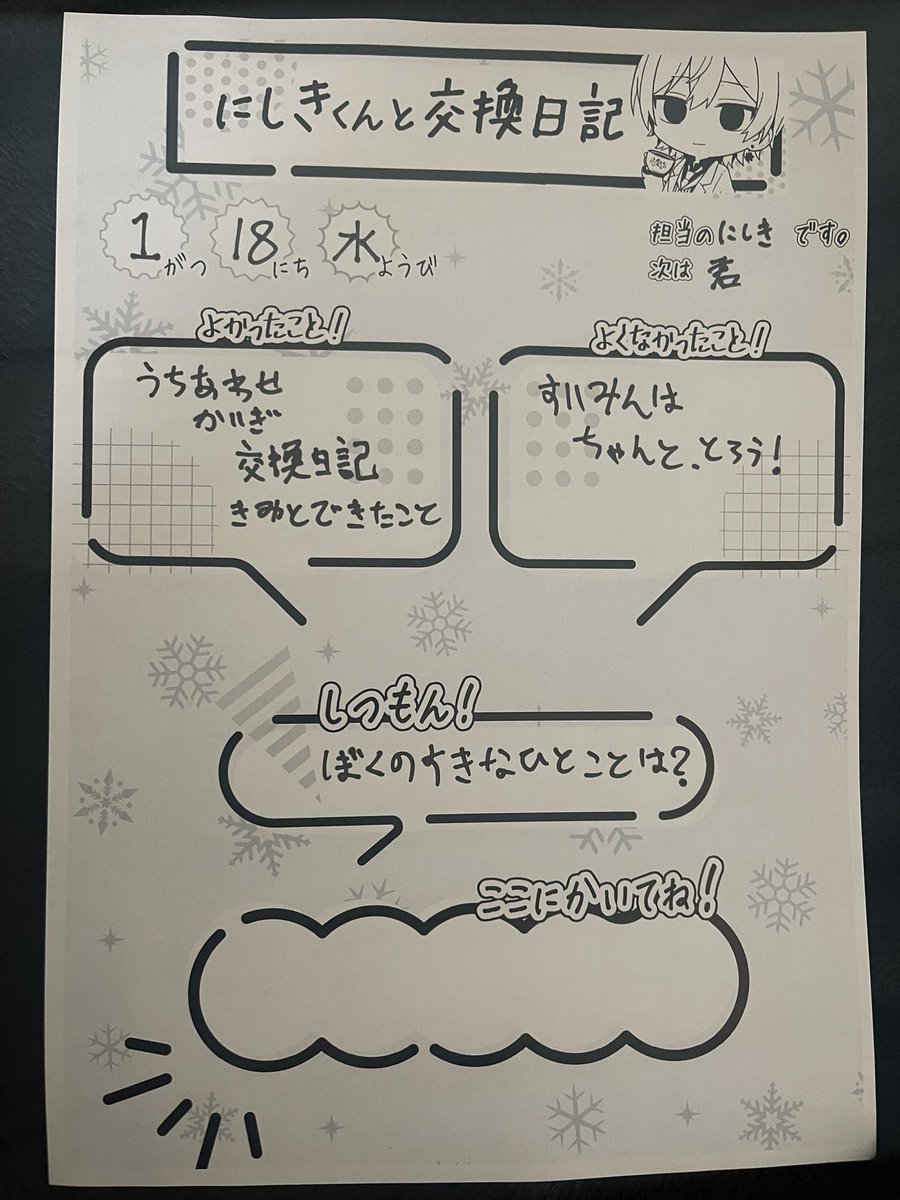 にしきくんと交換日記
1がつ 18にち 水ようび
担当のにしき です。
次は 君
よかったこと!
うちあわせ
かいぎ
交換日記
きみとできたこと
よくなかったこと!
すいみんは
ちゃんと、とろう!
しつもん!
ぼくのすきなひとことは?
ここにかいてね!